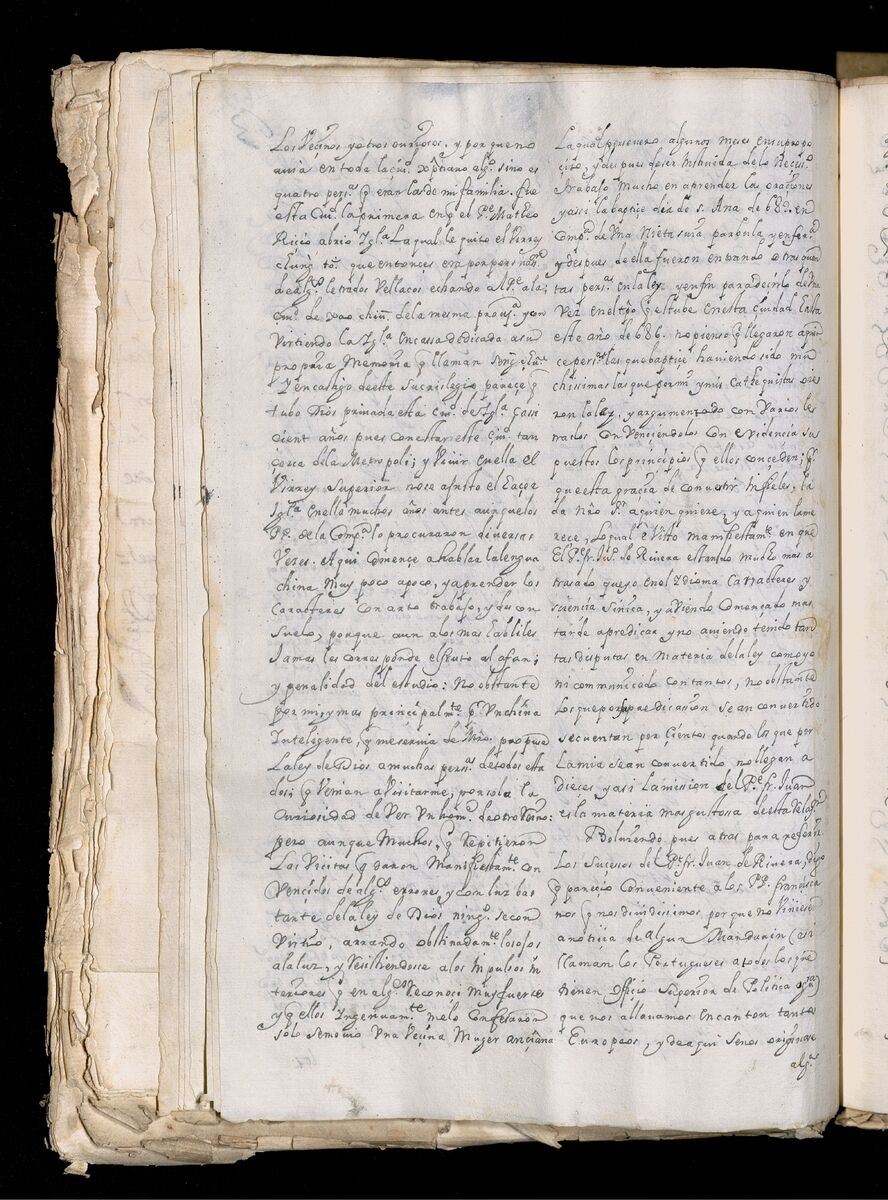 Los Veçinos y otros curiosos, y porque no
auia en toda la çiu.ᵈ xp̃tiano alg.º sino es
quatro pers.ˢ q̃ eran las de mi familia. fue
esta Ciu.ᵈ la primera en q̃ el P.ᵉ Matheo
Riçio abrio Igl.ª La qual le quito el Virrey
que entonces era por persuas.º
de alg.ˢ letrados vellacos echando al P.ᵉ a la
Ciu.ᵈ de xao chiu de la mesma prou.ª y con
virtiendo la Igl.ª en cassa dedicada a su
propria Memoria q̃ llaman
Y en castigo de este sacrilegio pareçe q̃
tubo Dios priuada esta Ciu.ᵈ de Igl.ª casi
cient años, pues con estar este Ciu.ᵈ tan
çerca de la Metropoli; y viuir en ella el
Virrey Superior no se ajusto el haçer
Igl.ª en ella muchos años antes aunque los
PP. de la Comp.ª lo procuraron diuersas
Vezes. Aqui Començe a hablar la lengua
china Muy poco apoco, y aprender los
Caracteres Con arto trabajo, y des con
suelo, porque aun a los mas habiles
Jamas les corresponde el fruto al afan;
y penalidad del estudio: No obstante
por mi, y mas prinçipalm.ᵗᵉ p.ʳ Vn china
Inteligente, q̃ me seruia de M̃ro. propuse
La ley de Dios a muchas pers.ˢ de todos esta
dos; q̃ Venian a Visitarme, por sola la
curiosidad de Ver Vn hom.ᵉ de otro Reino:
pero aunque Muchos, q̃ repitieron
Las Visitas q̃ daron Manifiestam.ᵗᵉ con
Vençidos de alg.ˢ errores, y con luz bas
tante de la ley de Dios ning.º se con
Virtio, çerrando obstinadam.ᵗᵉ los ojos
a la luz, y resistiendose a los impulsos in
teriores q̃ en alg.ˢ reconoci Muy fuertes
y q̃ ellos Ingenuam.ᵗᵉ me lo Confesaron
solo se mouio Vna Veçina Muger ançiana
La qual perseuero algunos meses en su propo
çito, y despues de ser Instruida de lo Neçes.º
trabajo mucho en aprender las oraçiones
y assi la baptiçe dia de S. Ana de 682. en
Comp.ª de Vna Nieta suia parbula y enfer.ª
y despues de ella fueron entrando otras quan
tas pers.ˢ en la ley y en fin para decirlo de una
Vez en el tpõ q̃ estube en esta ciudad hasta
este año de 686. no pienso q̃ llegaron a quin
ce pers.ˢ las que baptiçe hauiendo sido mu
chissimas las que por mi y mis Cathequistas oye
ron la ley, y argumentado con Varios le
trados Con Vençiendolos Con evidençia su
puestos los prinçipios q̃ ellos conceden;
que esta graçia de conuertir Infieles, la
da Nr̃o S.ʳ a quien quiere, y a quien la me
rece, Lo qual e visto manifiestam.ᵗᵉ en que
El P.ᵉ fr. Ju.º de Riuera estando mucho mas a
trasado que yo en el Idioma Carracteres y
sçiençia Sinica, y auiendo Comenzado mas
tarde a predicar y no auiendo tenido tan
tas disputas en Materia de la ley como yo
ni communicado con tantos, no obstante
Los que por su predicaçion se an conuertido
se cuentan por çientos quando los que por
La mia se an conuertido no llegan a
dieces y asi La mission del P.ᵉ fr. Juan
es la materia mas gustosa de esta Relaç.ⁿ
Boluiendo pues atras para referir
Los Sucessos del P.ᵉ fr. Juan de Riuera, digo
q̃ pareçio Conueniente a los PP. Francisca
nos q̃ nos diuidiessimos, porque no Viniese
a notiçia de Algun Mandarin (asi
llaman los Portugueses a todos los que
tienen Officio Superior de Politica
que nos allauamos en Canton tantos
Europeos, y de aqui se nos originase
alg.ˢ